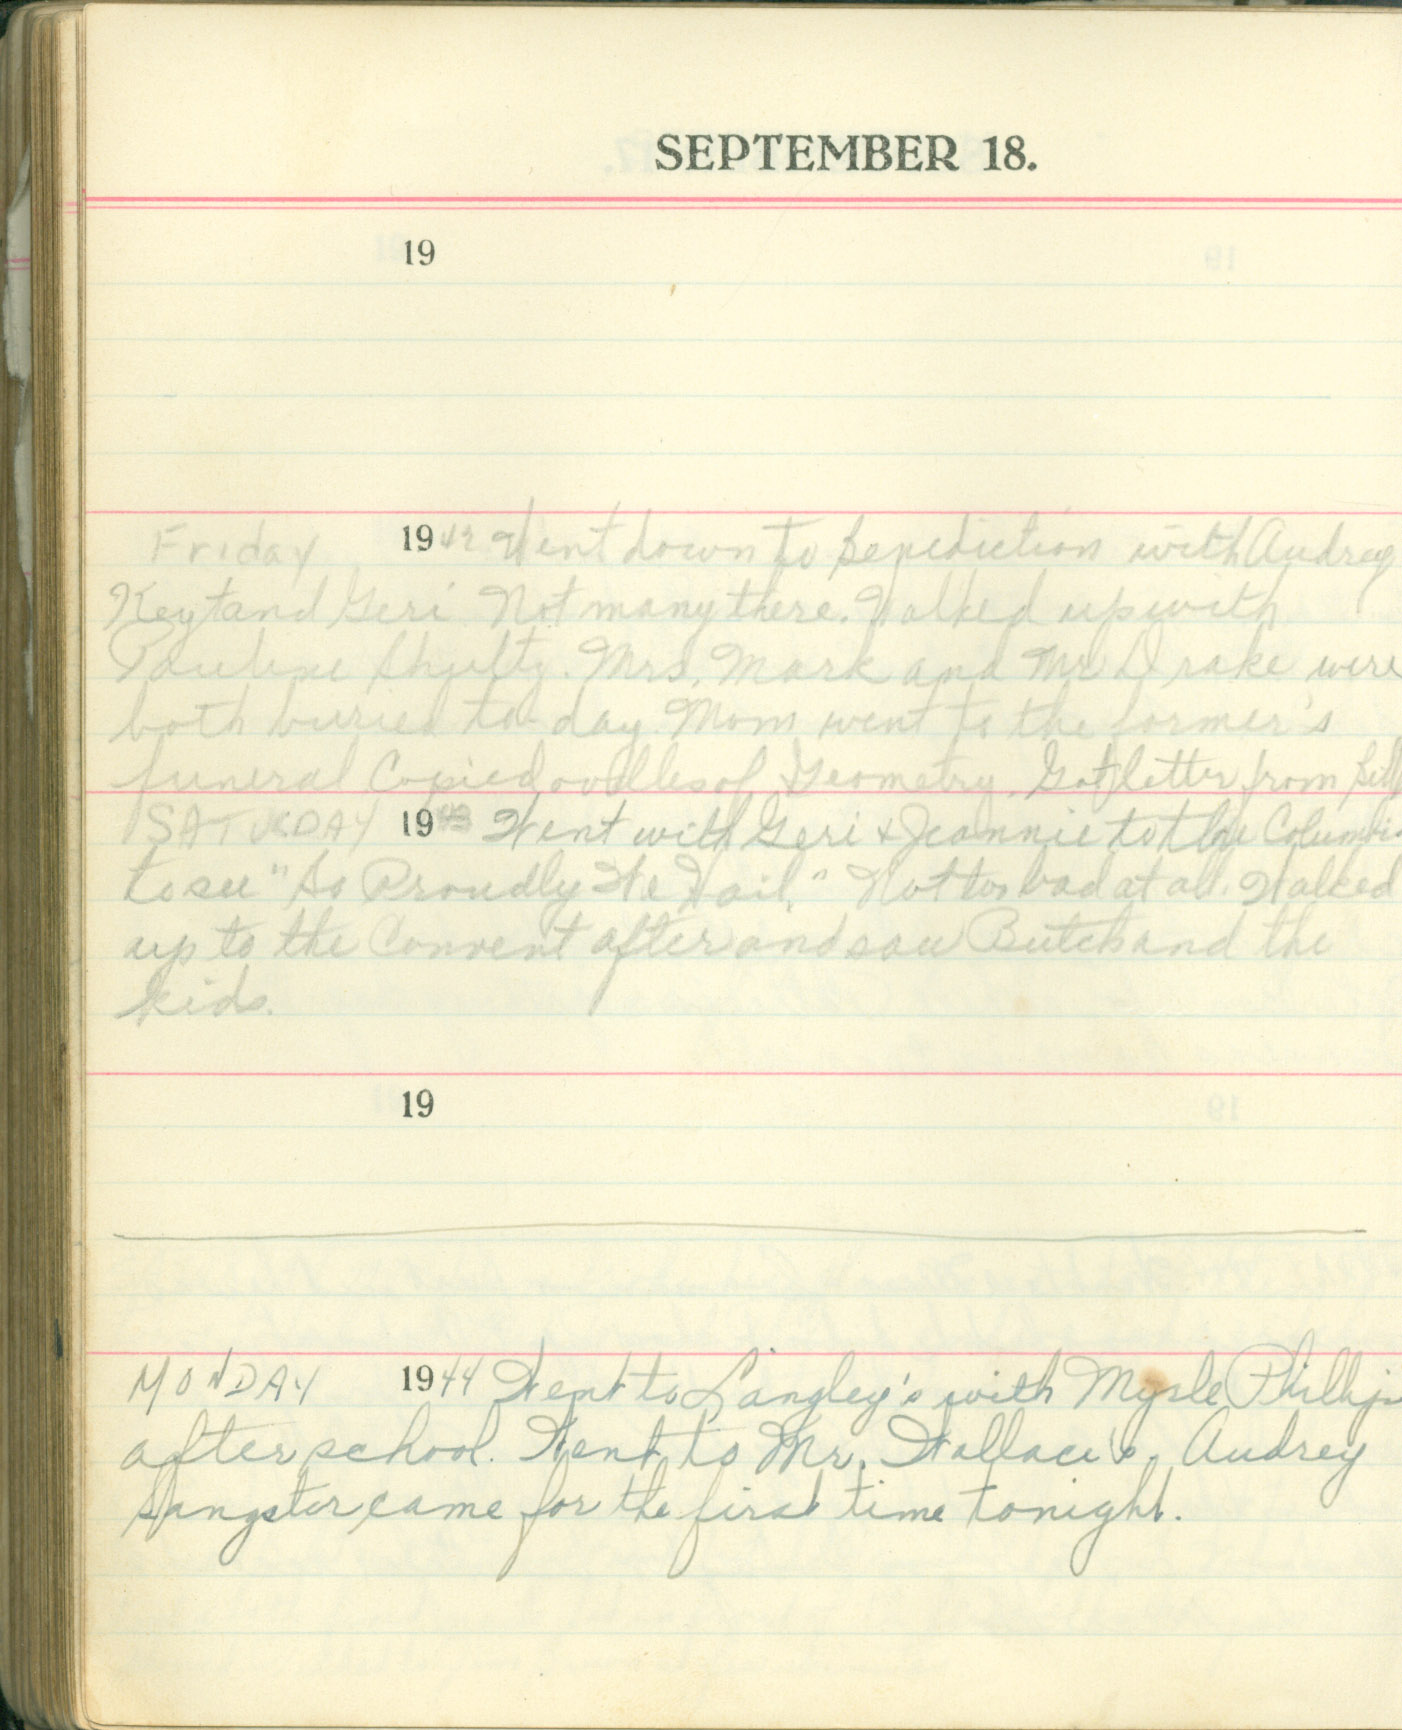 SEPTEMBER 18.
19
Friday 1942 Went down to Benediction with Audrey
Keyt and Geri. Not many there. Walked up with
Pauline Mrs. Mark and Mr Drake were
both buried to-day. Mom went to the former's
funeral Copied oodles of Geometry. Got letter from Bill
SATURDAY 1943 Went with Geri & Jeannie to the Columbia
to see "So Proudly We Hail." Not too bad at all. Walked
up to the Convent after and saw Butch and the
kids.
19
MONDAY 1944 Went to Langley's with Phillips
after school. Went to Mr. Wallace's. Audrey
Sangster came for the first time tonight.